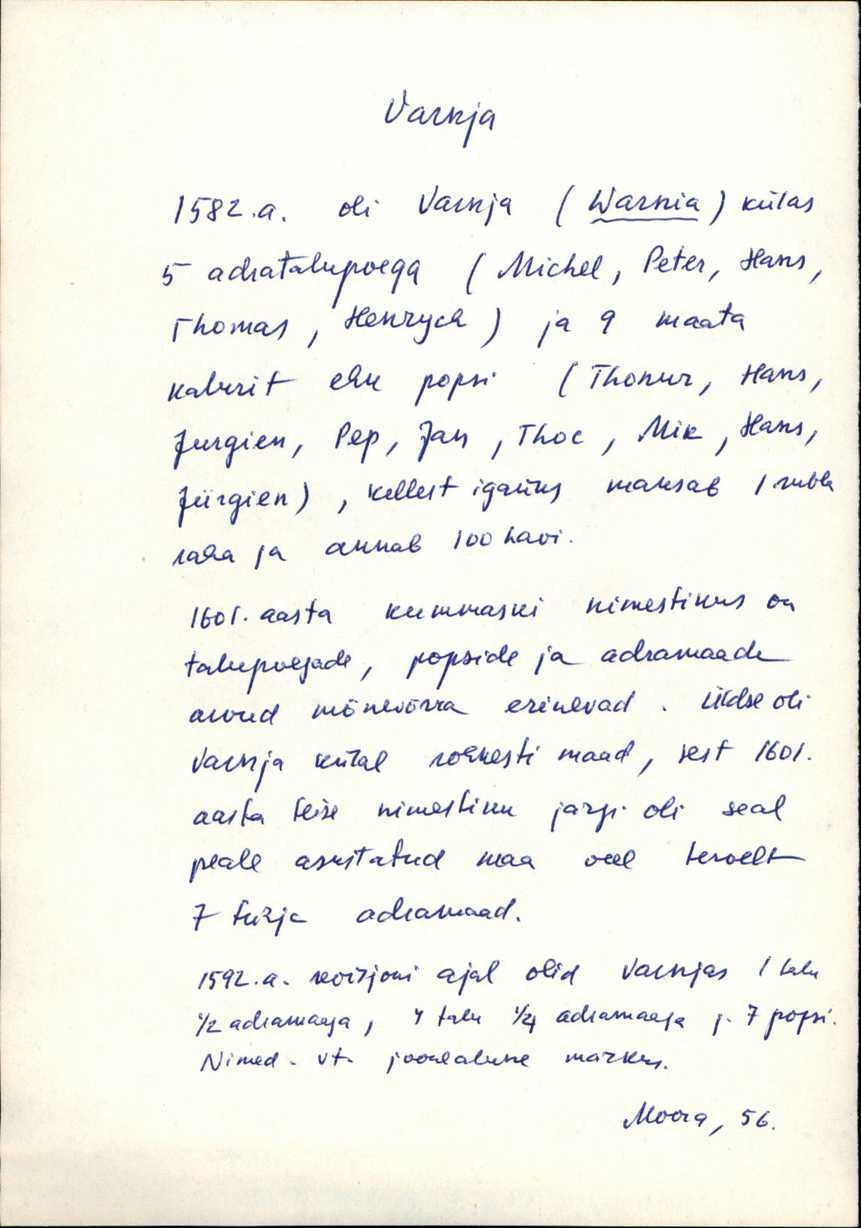 Varnja
1582.a. oli Varnja (Warnia) külas
5 adratalupoega (Michel, Peter, Hans,
Thomas, Henrych) ja 9 maata
kaburit ehk popsi (Thonur, Hans,
Jurgien, Pep, Jan, Thoc, Mik, Hans,
Jürgien), kellest igaüks maksab 1 rubla
raha ja annab 100 havi.
1601. aasta kummaski nimestikus on
talupoegade, popside ja adramaade
arvud mõnevõrra erinevad. Üldse oli
Varnja külal rohkesti maad, sest 1601.
aasta teise nimestiku järgi oli seal
peale asustatud maa veel tervelt
7 tühja adramaad.
1592.a. revisjoni ajal olid Varnjas 1 talu
1/2 adramaaga, 4 talu 1/4 adramaaga j. 7 popsi.
Nimed - vt. joonealune märkus.
Moora, 56.